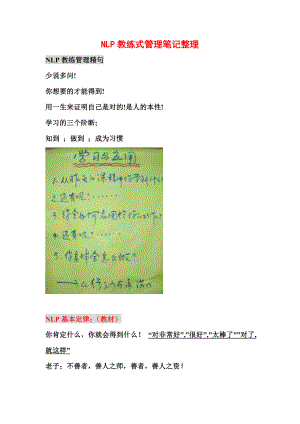 NLP教练式管理笔记整理
NLP教练管理精句
少说多问!
你想要的才能得到!
用一生来证明自己是对的!是人的本性!
学习的三个阶断;
知到 ; 做到 ; 成为习惯
学习与应用
2.还有呢?
4.还有呢?
NLP基本定律;（教材）
你肯定什么，你就会得到什么！ “对非常好”,“很好”,“太棒了”“对了,
就这样”
老子；不善者，善人之师，善者，善人之资！